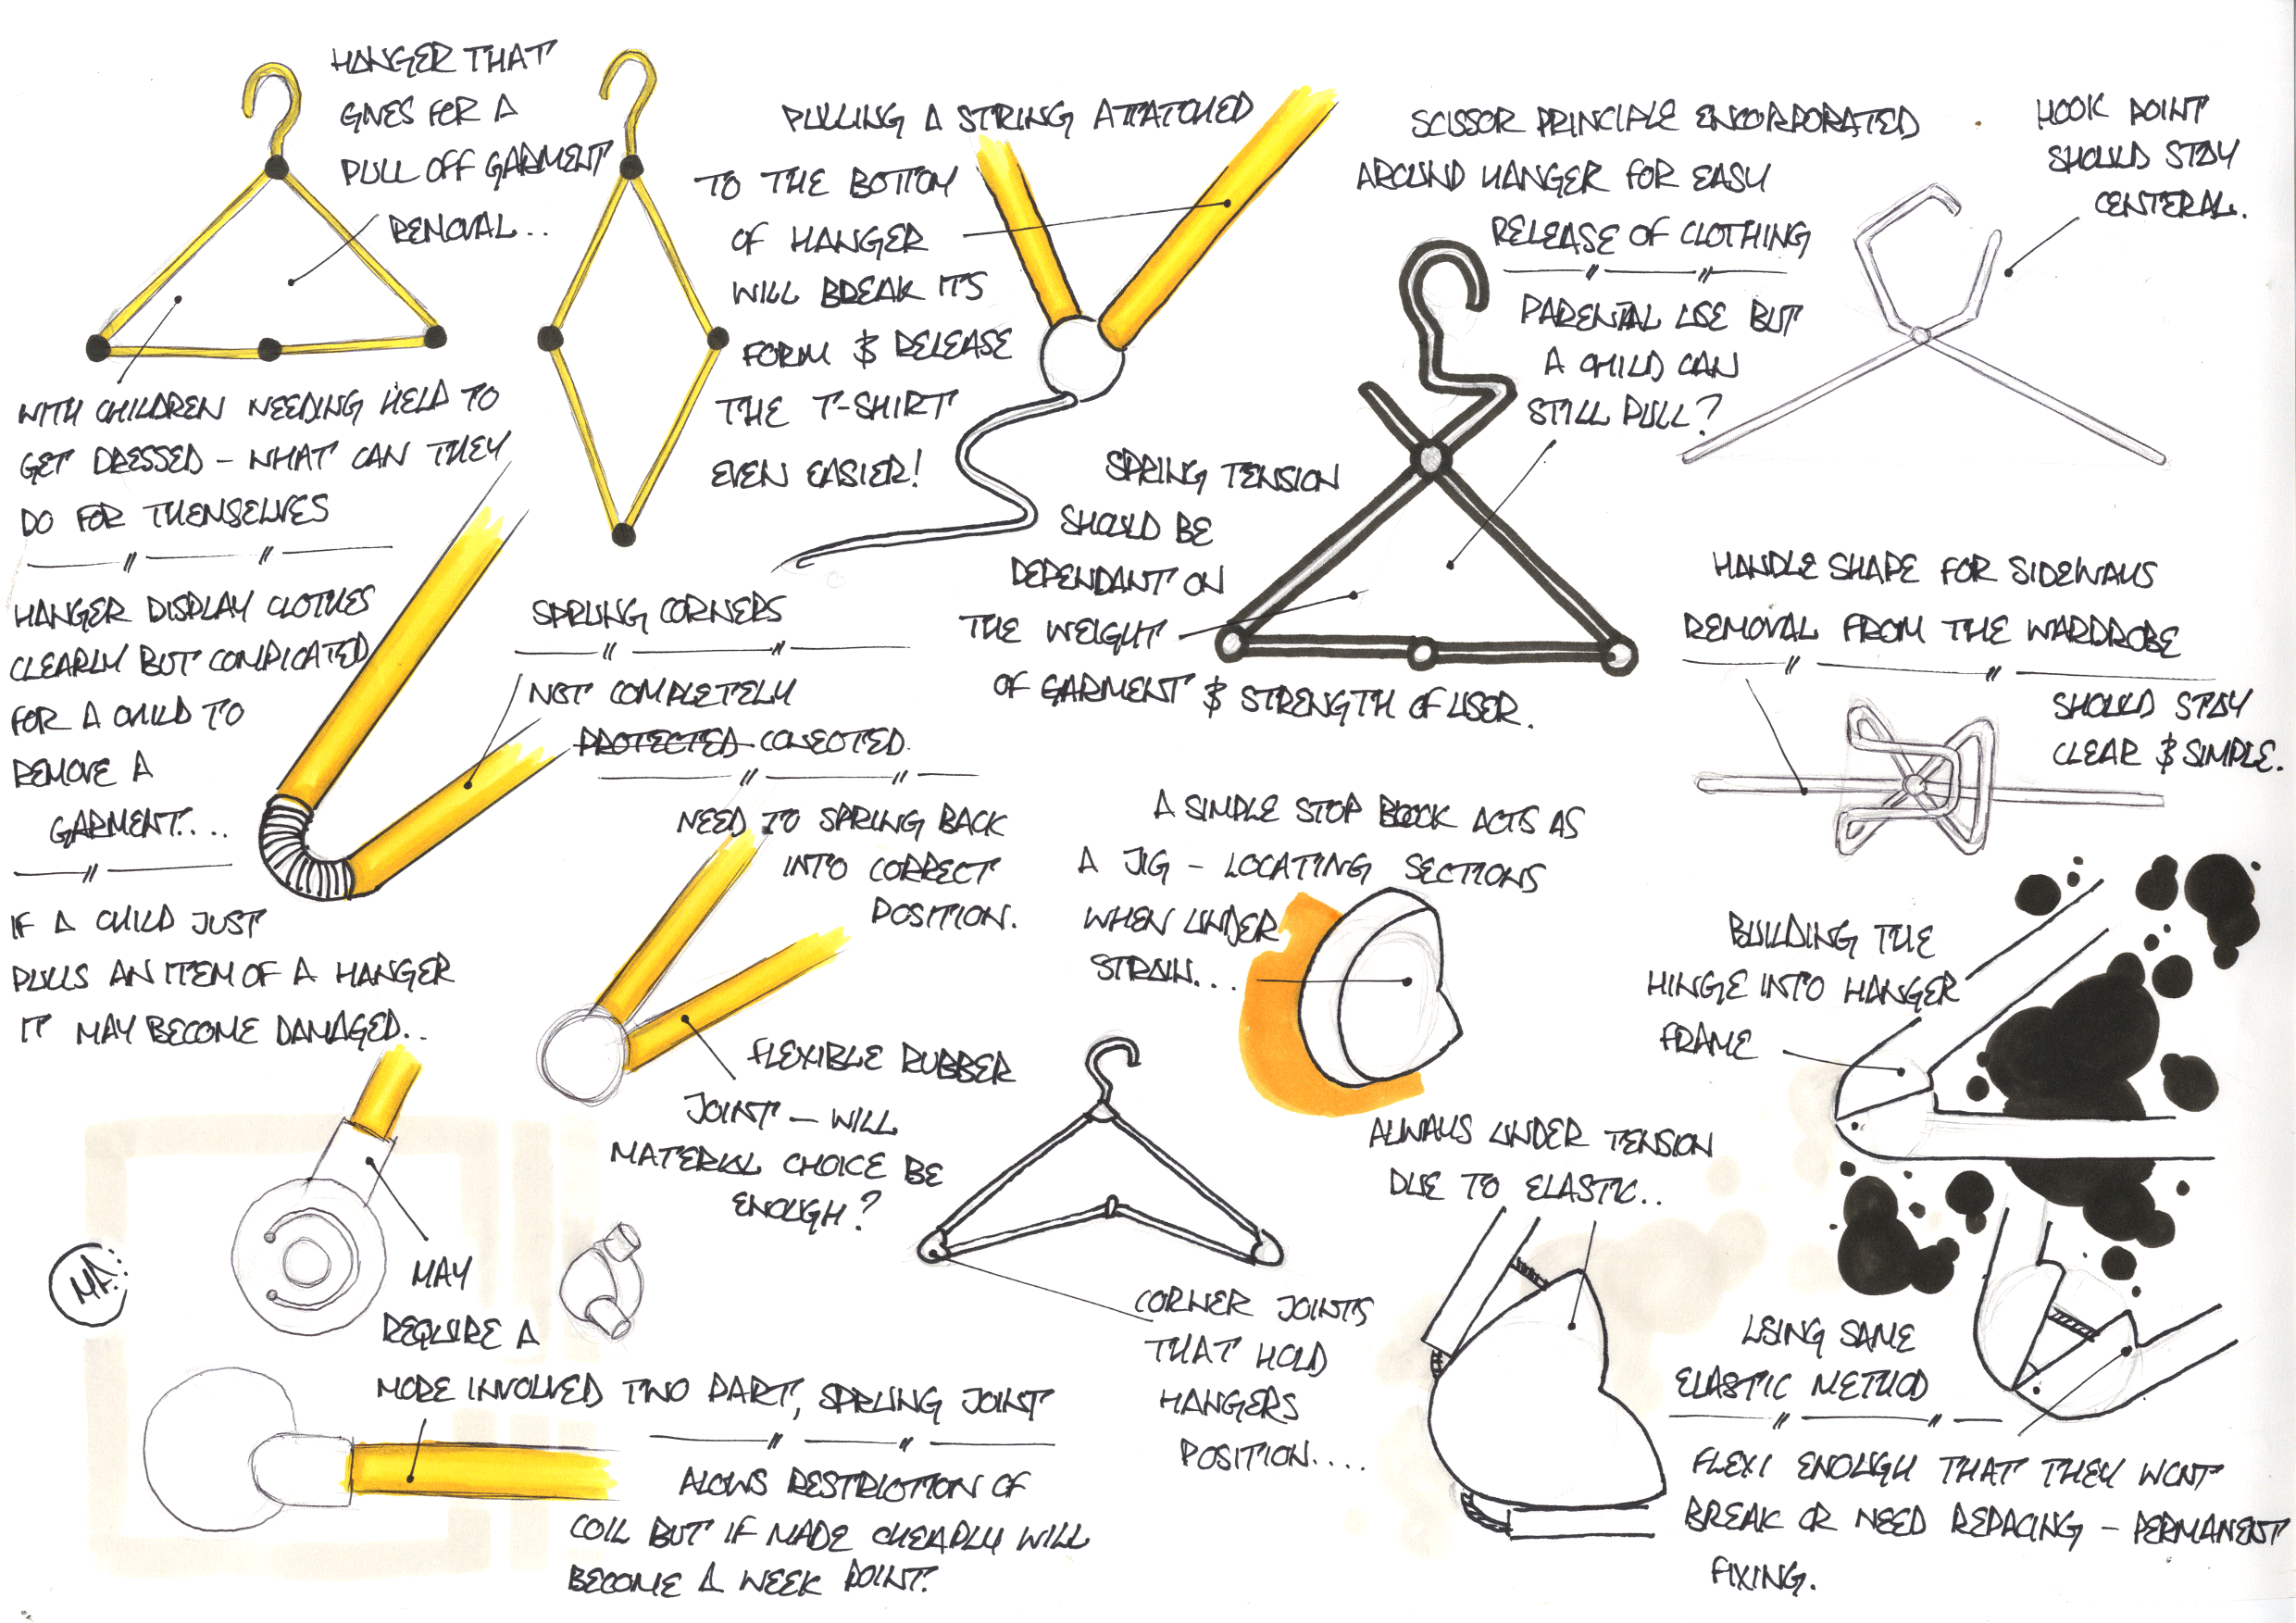 HANGER THAT
GIVES FOR A
PULL OFF GARMENT
REMOVAL..
WITH CHILDREN NEEDING HELD TO
GET DRESSED - WHAT CAN THEY
DO FOR THEMSELVES
HANGER DISPLAY CLOTHES
CLEARLY BUT COMPICATED
FOR A CHILD TO
REMOVE A
GARMENT....
IF A CHILD JUST
PULLS AN ITEM OF A HANGER
IT MAY BECOME DAMAGED..
PULLING A STRING ATTATCHED
TO THE BOTTOM
OF HANGER
WILL BREAK ITS
FORM & RELEASE
THE T-SHIRT
EVEN EASIER!
SPRUNG CORNERS
NOT COMPLETELY
PROTECTED CONECTED.
NEED TO SPRING BACK
INTO CORRECT
POSITION.
FLEXIBLE RUBBER
JOINT - WILL
MATERIAL CHOICE BE
ENOUGH?
MAY
REQUIRE A
MORE INVOLVED TWO PART, SPRUNG JOINT
ALOWS RESTRICTION OF
COIL BUT IF MADE CHEAPLY WILL
BECOME A WEEK POINT.
MA.
SCISSOR PRINCIPLE ENCORPORATED
AROUND HANGER FOR EASY
RELEASE OF CLOTHING
PARENTAL USE BUT
A CHILD CAN
STILL PULL?
SPRING TENSION
SHOULD BE
DEPENDANT ON
THE WEIGHT
OF GARMENT & STRENGTH OF USER.
HOOK POINT
SHOULD STAY
CENTERAL.
HANDLE SHAPE FOR SIDEWAYS
REMOVAL FROM THE WARDROBE
SHOULD STAY
CLEAR & SIMPLE.
A SIMPLE STOP BLOCK ACTS AS
A JIG - LOCATING SECTIONS
WHEN UNDER
STRAIN...
CORNER JOINTS
THAT HOLD
HANGERS
POSITION....
BUILDING THE
HINGE INTO HANGER
FRAME
ALWAYS UNDER TENSION
DUE TO ELASTIC..
USING SAME
ELASTIC METHOD
FLEXI ENOUGH THAT THEY WONT
BREAK OR NEED REPACING - PERMANENT
FIXING.